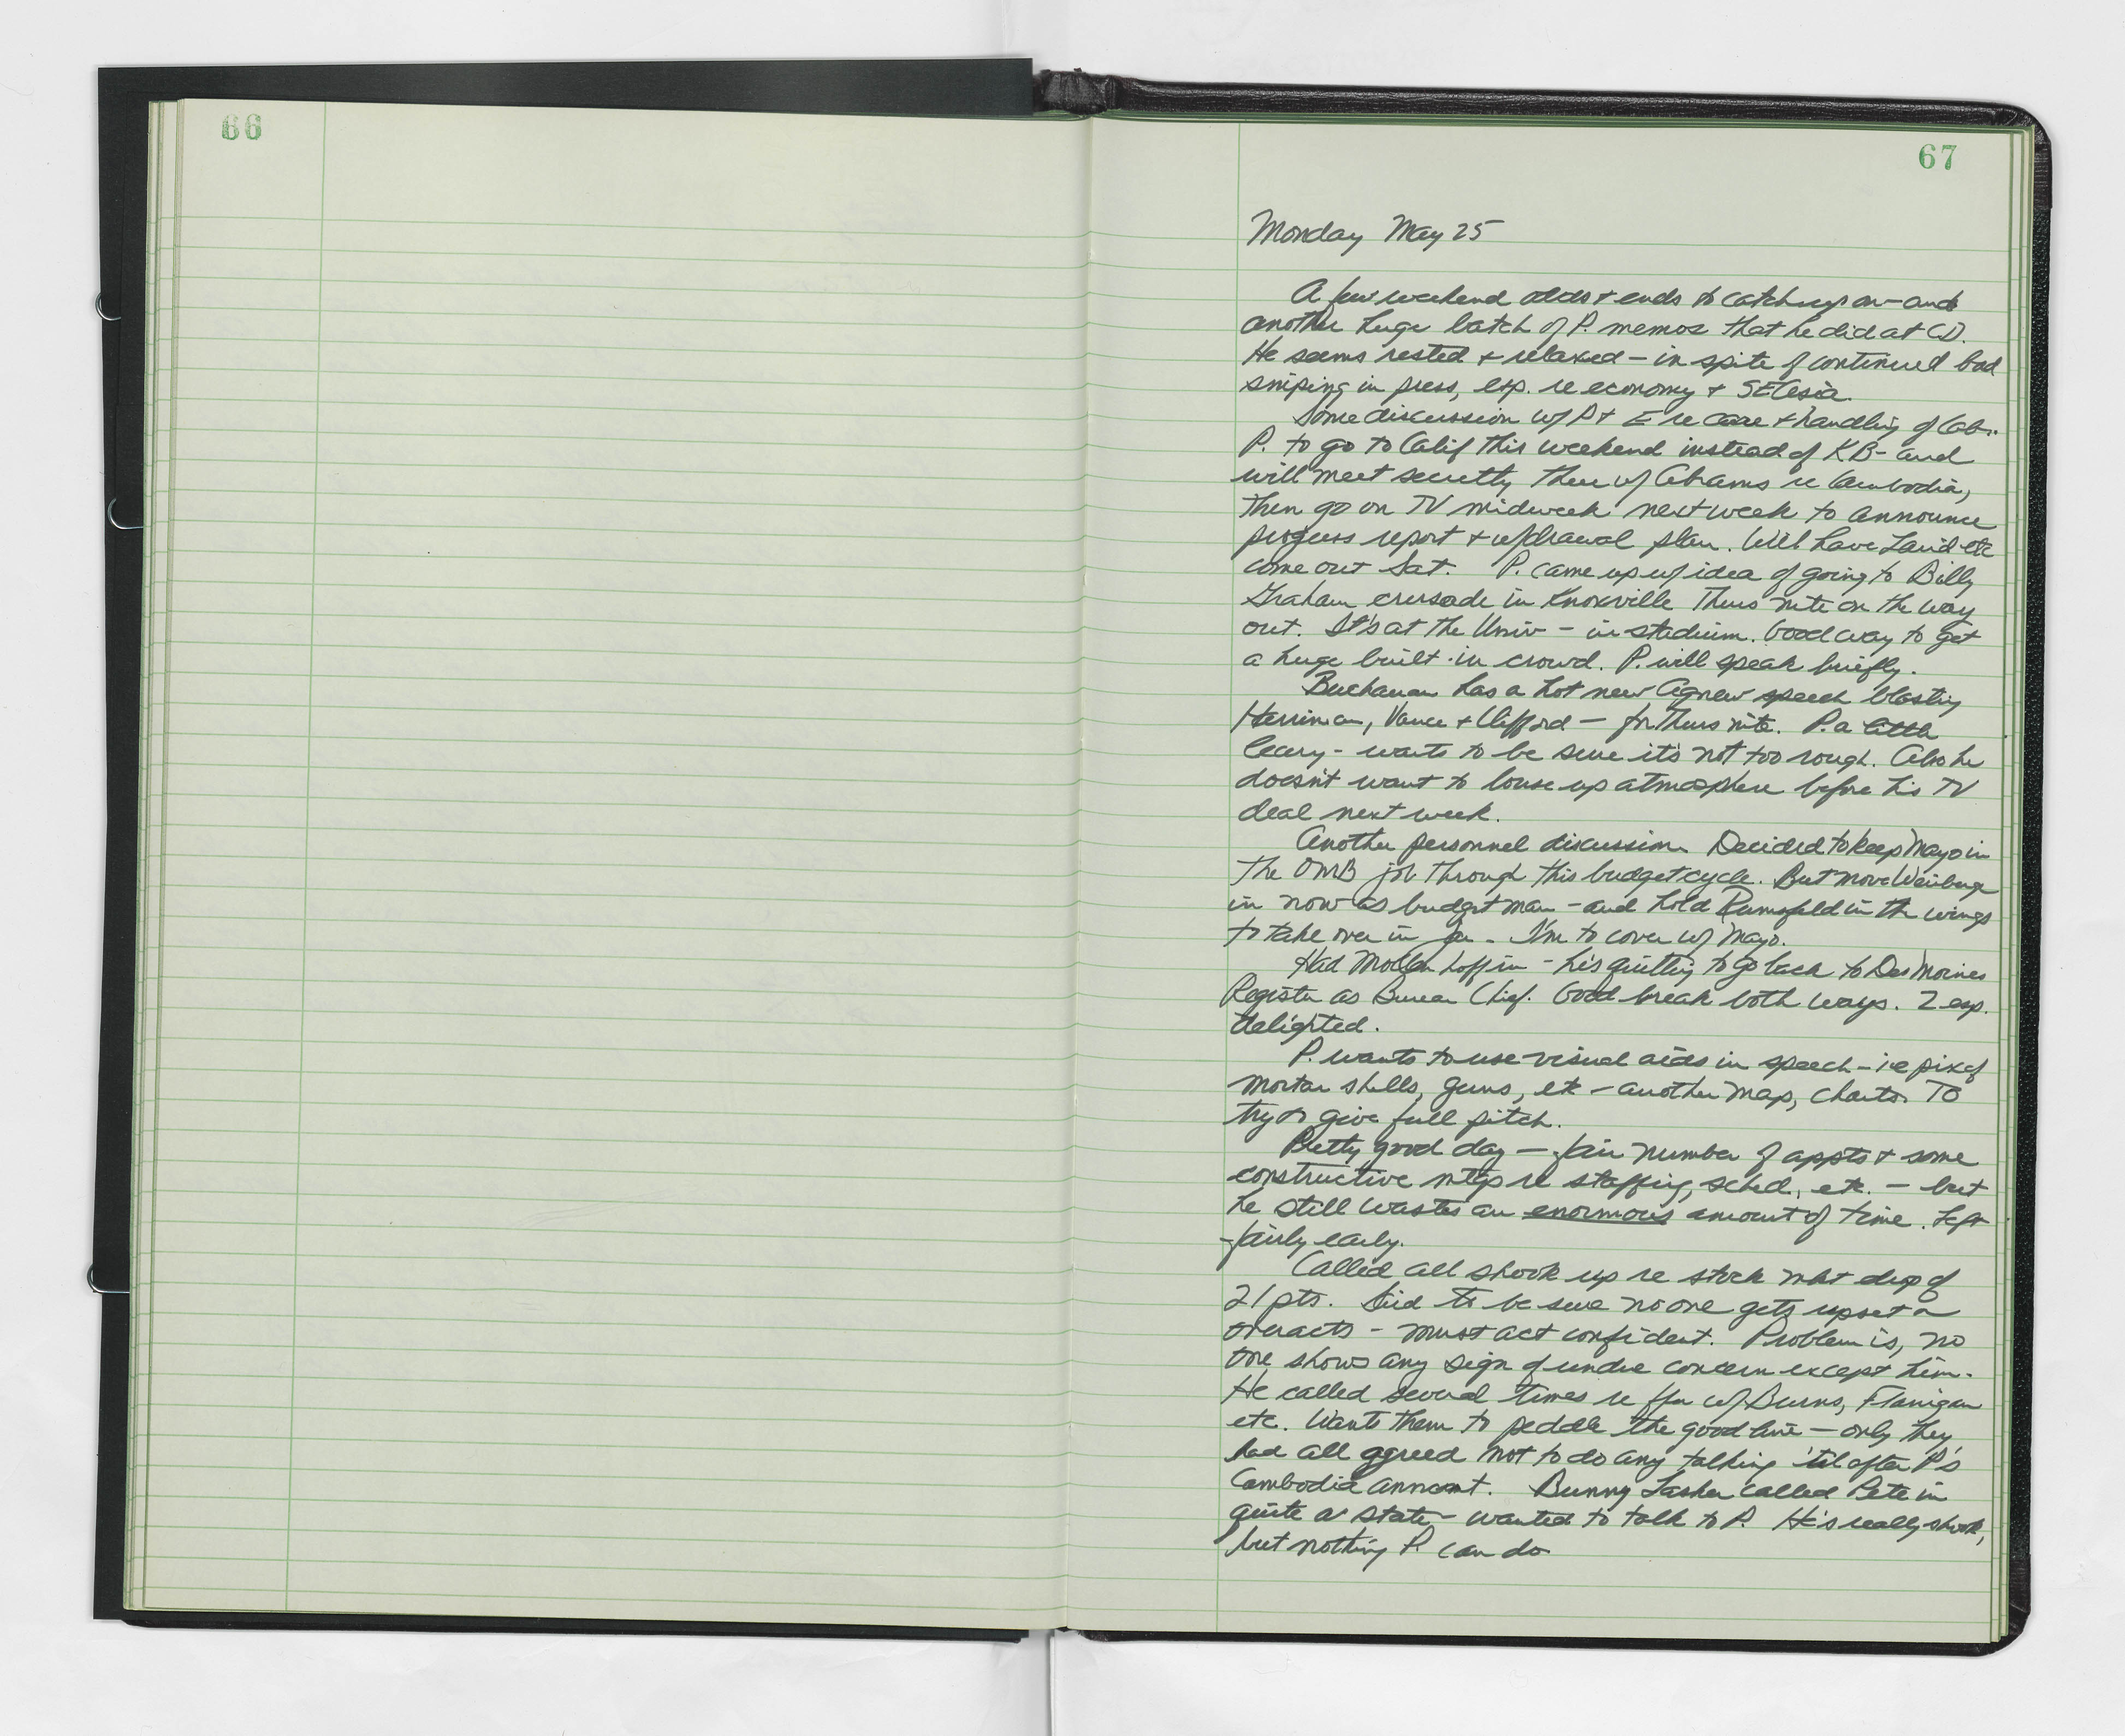 66
67
Monday May 25
A few weekend odds + ends to catch up on - and
another huge batch of P. memos that he did at CD.
He seems rested + relaxed - in spite of continued bad
sniping in press, esp. re economy + SEAsia.
Some discussion w/ P + E re care + handling of Cab..
P. to go to Calif this weekend instead of KB - and
will meet secretly there w/ Abrams re Cambodia,
then go on TV midweek next week to announce
progress report + w/drawal plan. Will have Laird etc
come out Sat. P. came up w/ idea of going to Billy
Graham crusade in Knoxville Thurs nite on the way
out. It's at the Univ - in stadium. Good way to get
a huge built-in crowd. P. will speak briefly.
Buchanan has a hot new Agnew speech blasting
Harriman, Vance + Clifford - for Thurs nite. P. a little
leery - wants to be sure it's not too rough. Also he
doesn't want to louse up atmosphere before his TV
deal next week.
Another personnel discussion. Decided to keep Mayo in
the OMB job through this budget cycle. But move Weinberger
in now as budget man - and hold Rumsfeld in the wings
to take over in Jan. I'm to cover w/ Mayo.
Had Mollenhoff in - he's quitting to go back to Des Moines
Register as Bureau Chief. Good break both ways. Z esp.
delighted.
P. wants to use visual aids in speech - ie pix of
mortar shells, guns, etc - another map, charts. To
try to give full pitch.
Pretty good day - fair number of appts + some
constructive mtgs re staffing, sched, etc. - but
he still wastes an enormous amount of time. Left
fairly early.
Called all shook up re stock mkt drop of
21 pts. Said to be sure no one gets upset or
overacts - must act confident. Problem is, no
one shows any sign of undue concern except him.
He called several times re ffu w/ Burns, Flanigan
etc. Wants them to peddle the good line - only they
had all agreed not to do any talking 'til after P's
Cambodia anncmt. Bunny Lasker called Pete in
quite a state - wanted to talk to P. He's really shook,
but nothing P. can do